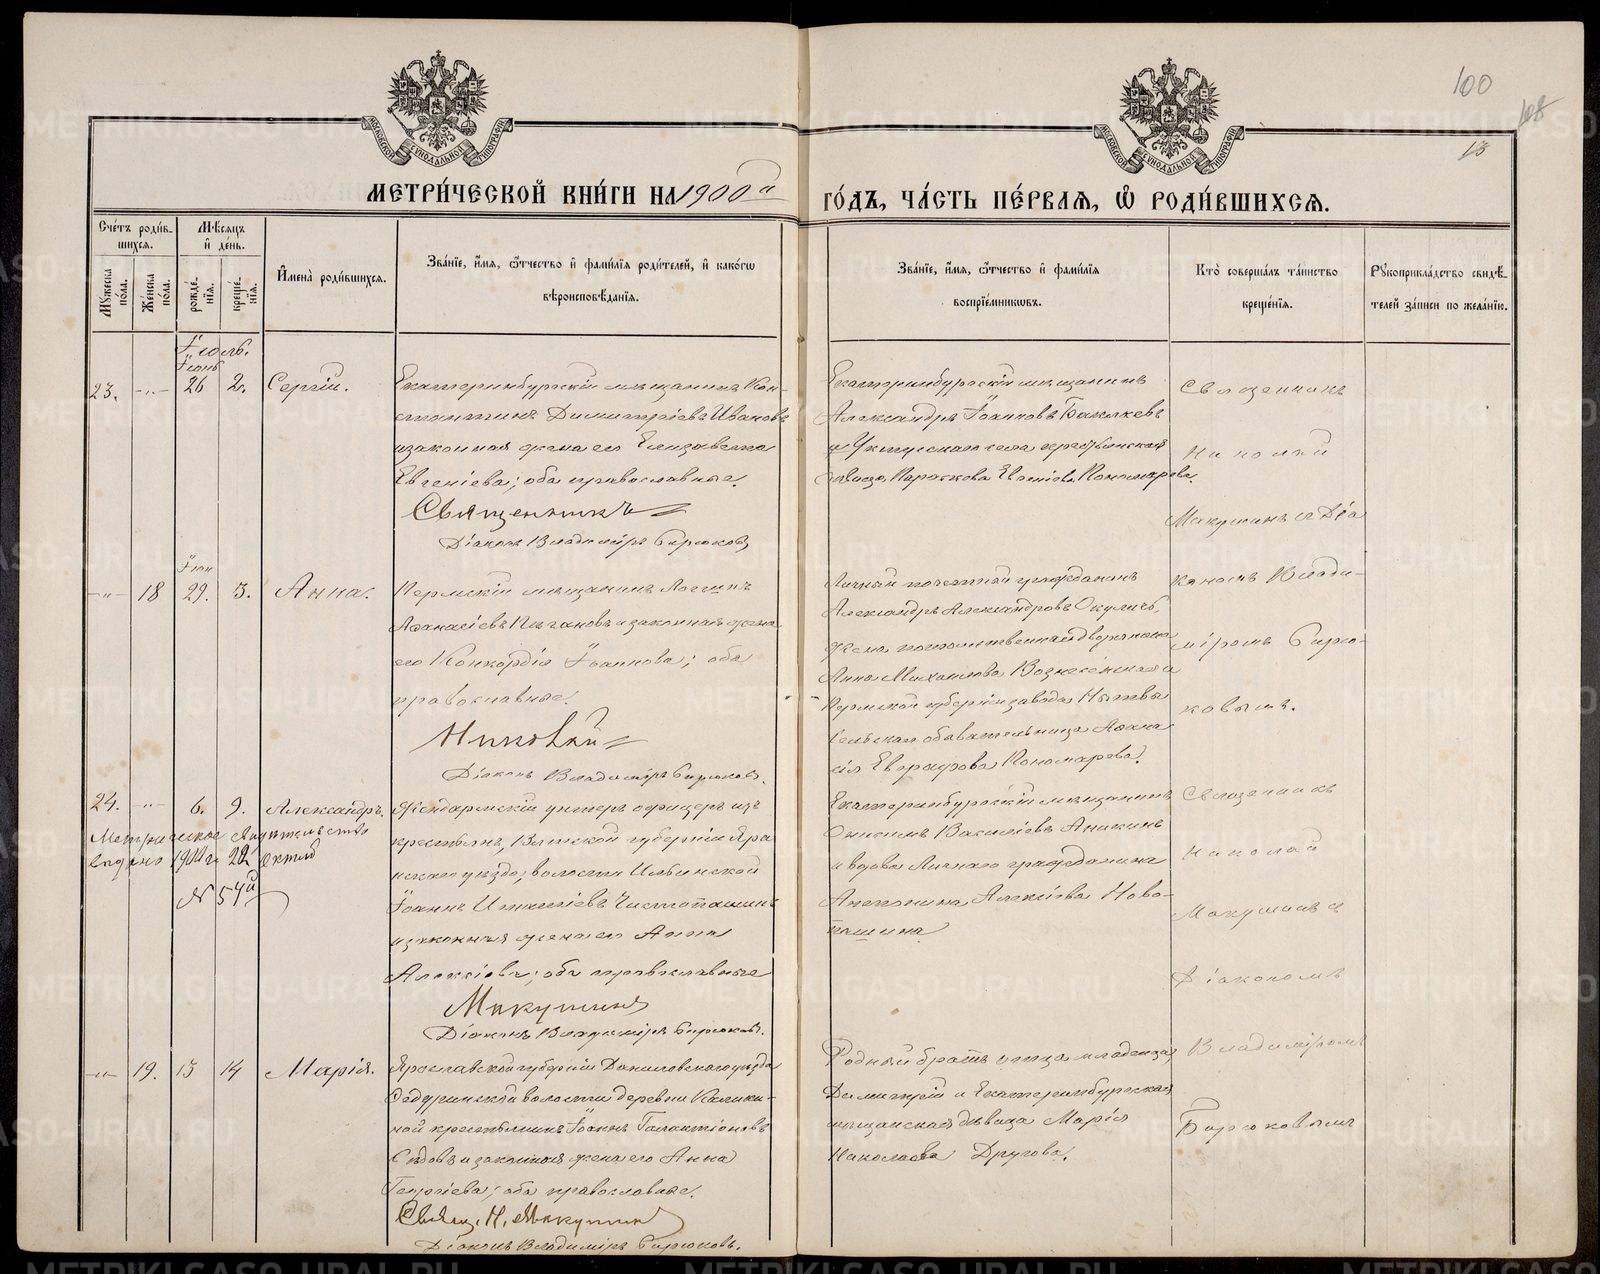 100
108
13
МОСКОВСКОЙ СѴНОДАЛЬНОЙ ТИПОГРАФІИ
МОСКОВСКОЙ СѴНОДАЛЬНОЙ ТИПОГРАФІИ
МЕТРИ́ЧЕСКОЙ КНИ́ГИ НА 1900й
ГО́ДЪ, ЧА́СТЬ ПЕ́РВАЯ, Ѽ РОДИ́ВШИХСЯ.
Сче́тъ роди́в-
шихся.
Мѣ́сяцъ
и̂ де́нь.
Мꙋ́жеска
по́ла.
Же́нска
по́ла.
рожде́-
нїя.
креще́-
нїя.
И҆мена̀ роди́вшихся.
Зва́нїе, и҆́мя, ѻ҆́тчество и҆ фами́лїя роди́телей, и҆ како́гѡ
вѣроисповѣ́данїя.
Зва́нїе, и҆́мя, ѻ҆́тчество и҆ фами́лїя
воспрїе́мникѡвъ.
Кто̀ соверша́лъ та́инство
креще́нїя.
Рꙋкоприкла́дство свидѣ́-
телей за́писи по жела́нїю.
Іюль.
Іюнь
23. -"- 26 2. Сергій.
Екатеринбургскій мѣщанинъ Кон-
стантинъ Димитріевъ Ивановъ
и законная жена его Елизавета
Евгеніева; оба православные.
Священникъ
Діаконъ Владиміръ Бирюковъ
Екатеринбургскій мѣщанинъ
Александръ Іоанновъ Бакакевъ
и Уктусскаго села крестьянская
дѣвица Параскева Евгеніева Пономарева.
Священникъ
Николай
Макушинъ и Діа
кономъ Влади-
міромъ Бирю-
ковымъ.
Іюн
-"- 18 29. 3. Анна.
Пермскій мѣщанинъ Логинъ
Аѳанасіевъ Цыгановъ и законная жена
его Конкордія Іоаннова; оба
православные.
Николай
Діаконъ Владиміръ Бирюковъ.
Личный почетный гражданинъ
Александръ Александровъ Окуличъ,
жена потомственнаго дворянина
Анна Михаилова Вознесенская и
Пермской губерніи завода Нытвы
сельская обывательница Аѳана
сія Евграфова Пономарева.
24. -"- 6. 9. Александръ.
Метрическое свидѣтельство
выдано 1904 г. 22 Октяб
№ 54й
Жандармскій унтеръ офицеръ изъ
крестьянъ, Вятской губерніи Яра
нскаго уѣзда, волости Ильинской
Іоаннъ Игнатіевъ Чистопашинъ
и законная жена его Анна
Алексіева; оба православные
Макушинъ
Діаконъ Владиміръ Бирюковъ.
Екатеринбургскій мѣщанинъ
Онисимъ Василіевъ Аникинъ
и вдова личнаго гражданина
Ангелина Алексіева Ново-
пашина
Священникъ
Николай
Макушинъ съ
Діакономъ
Владиміромъ
Бирюковымъ
-"- 19. 13 14 Марія.
Ярославской губерніи Даниловскаго уѣзда
волости деревни Калинки-
ной крестьянинъ Іоаннъ Галактіоновъ
Сѣдовъ и законная жена его Анна
Георгіева; оба православные.
Свящ. Н. Макушинъ
Діаконъ Владиміръ Бирюковъ.
Родный братъ отца младенца,
Димитрій и Екатеринбургская
мѣщанская дѣвица Марія
Николаева Другова.